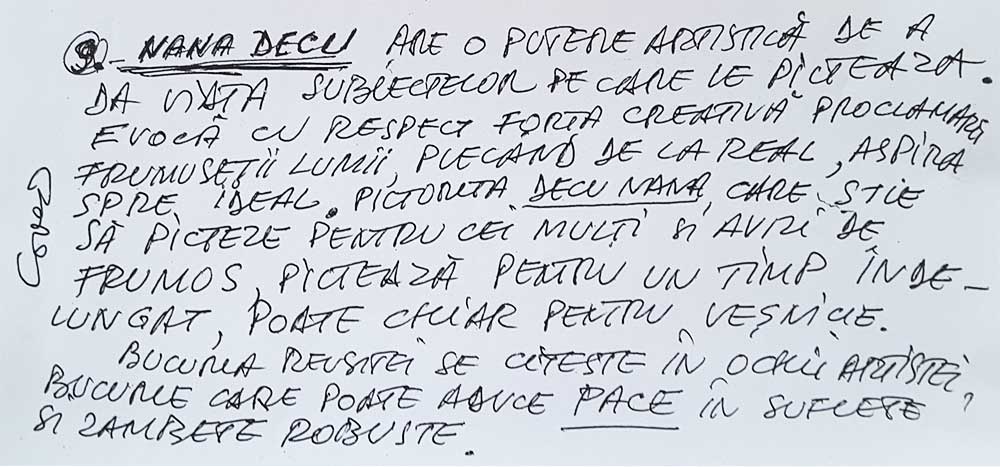 9. - NANA DECU ARE O PUTERE ARTISTICĂ DE A
DA VIAȚA SUBIECTELOR PE CARE LE PICTEAZA.
EVOCĂ CU RESPECT FORȚA CREATIVĂ PROCLAMARĂ
FRUMUSEȚII LUMII, PLECÂND DE LA REAL, ASPIRA
SPRE IDEAL. PICTORITA DECU NANA, CARE ȘTIE
SĂ PICTEZE PENTRU CEI MULȚI SI AVIZI DE
FRUMOS, PICTEAZĂ PENTRU UN TIMP ÎNDE-
LUNGAT, POATE CHIAR PENTRU VEȘNICIE.
BUCURIA REUSITEI SE CITESTE ÎN OCHII ARTISTEI,
BUCURIE CARE POATE ADUCE PACE ÎN SUFLETE
SI ZAMBETE ROBUSTE.